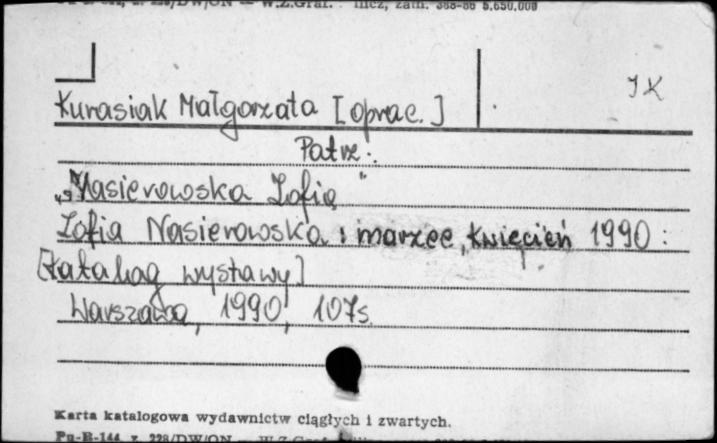 W.Z.Graf. zam. 368-86 5.650.000
IX
Kurasiak Małgorzata [oprac.]
Patrz:
„Nasierowska Zofia"
Zofia Nasierowska : marzec, kwiecień 1990 :
[katalog wystawy]
Warszawa, 1990, 107s.
Karta katalogowa wydawnictw ciągłych i zwartych.
Pu-R-144 z. 228/DW/ON — W.Z.Graf.